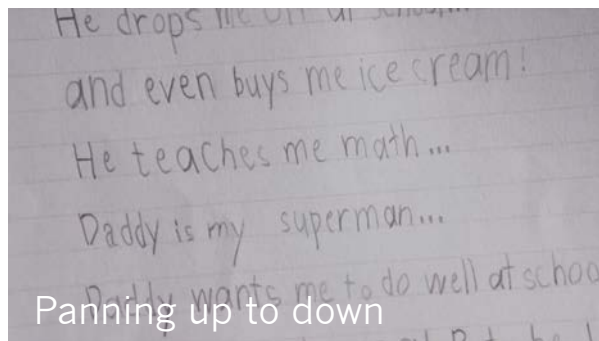 He drops me off at school...
and even buys me ice cream!
He teaches me math...
Daddy is my superman...
Daddy wants me to do well at schoo
Panning up to down